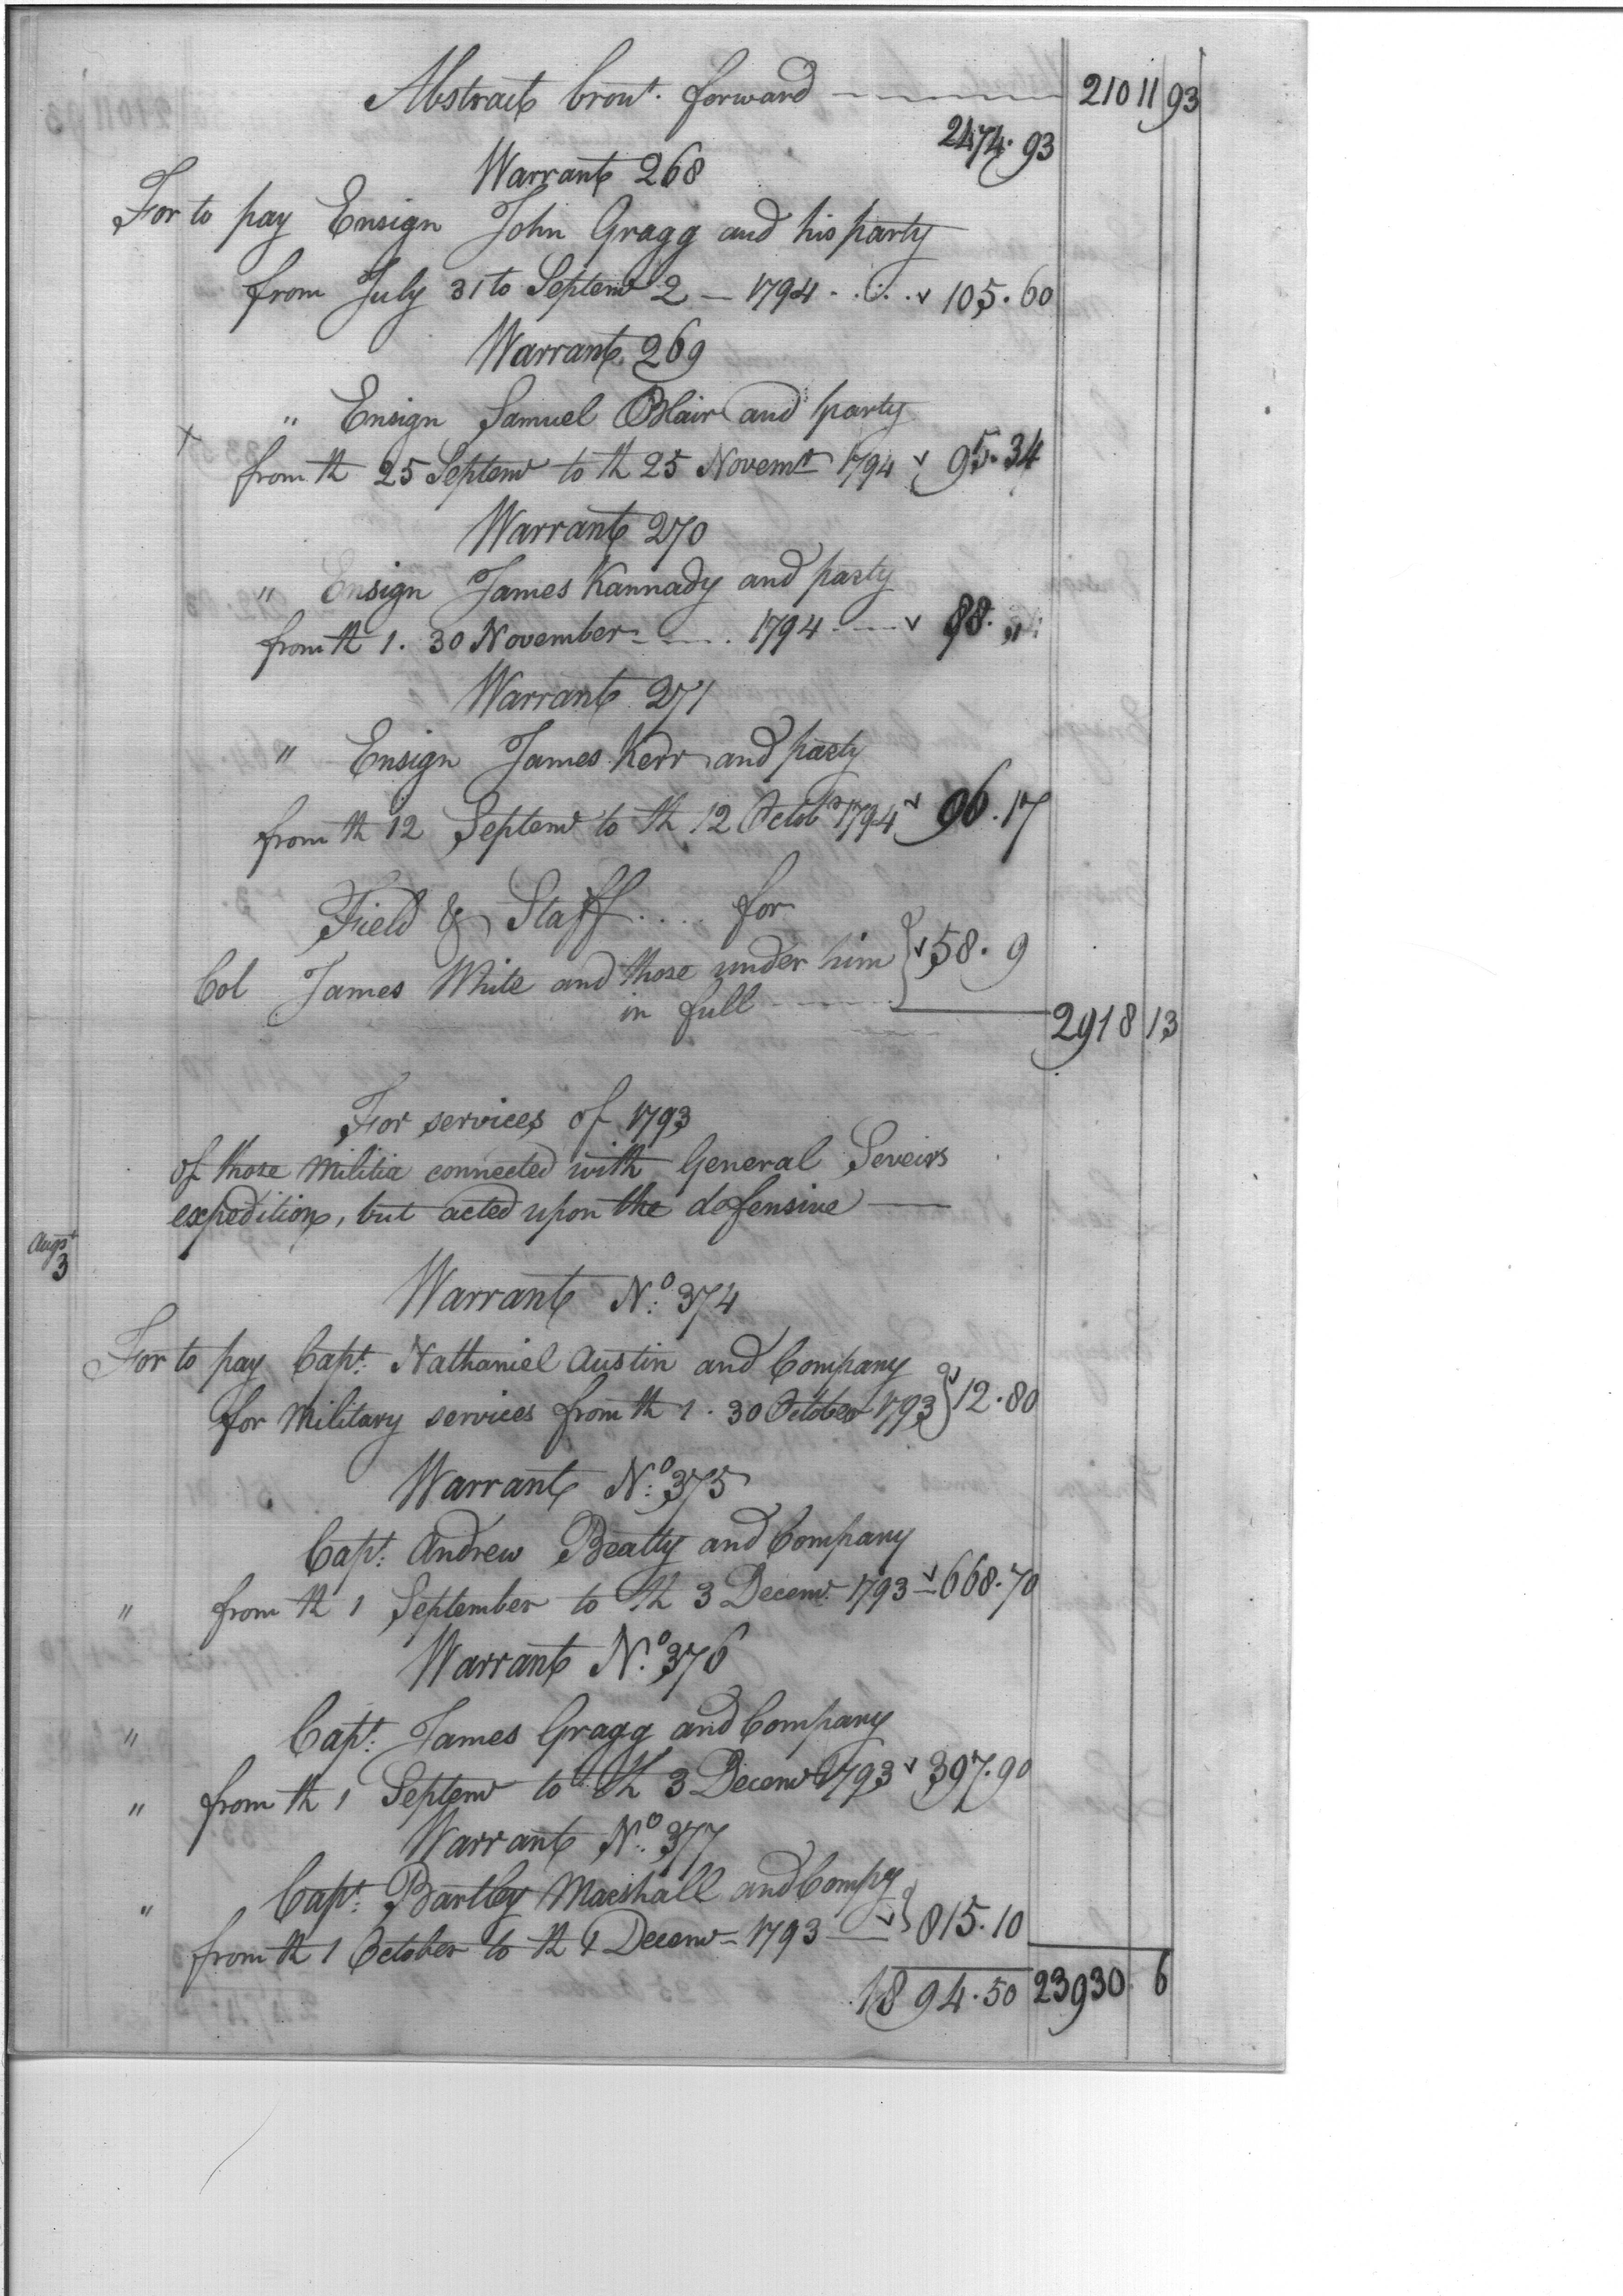 Abstract brout. forward 21011 93
2474. 93
Warrant 268
For to pay Ensign John Gragg and his party
from July 31 to Septemr 2 — 1794 . . . . v 105. 60
Warrant 269
" Ensign Samuel Blair and party
x from th 25 Septemr to th 25 Novemr 1794 v 95. 34
Warrant 270
" Ensign James Kannady and party
from th 1. 30 November 1794 v 88. "
Warrant 271
" Ensign James Kerr and party
from th 12 Septemr to th 12 Octobr 1794 v 96. 17
Field & Staff . . . . for
Col James White and those under him } v 58. 9
in full
2918 13
For services of 1793
of those Militia connected with General Seveirs
expedition, but acted upon the defensive —
Augst
3
Warrant No: 374
For to pay Capt: Nathaniel Austin and Company
for Military services from th 1. 30 October 1793 } v 12. 80
Warrant No: 375
Capt: Andrew Beatty and Company
" from th 1 September to th 3 Decemr 1793 v 668. 70
Warrant No. 376
" Capt: James Gragg and Company
" from th 1 Septemr to th 3 Decemr 1793 v 397. 90
Warrant No: 377
" Capt: Bartley Marshall and Compy
from th 1 October to th 1 Decemr 1793 — v } 815. 10
1894. 50 23930. 6